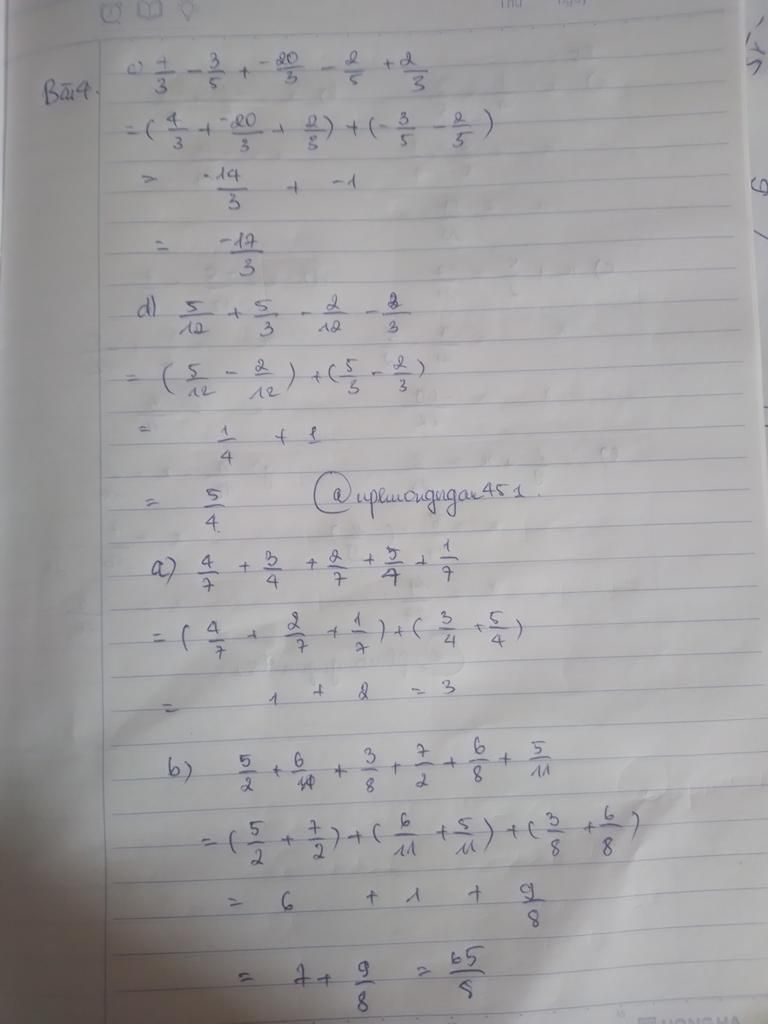 Bài 4.
c) 4/3 - 3/5 + -20/3 - 2/5 + 2/3
= ( 4/3 + -20/3 + 2/3 ) + ( -3/5 - 2/5 )
= -14/3 + -1
= -17/3
d) 5/12 + 5/3 - 2/12 - 2/3
= ( 5/12 - 2/12 ) + ( 5/3 - 2/3 )
= 1/4 + 1
= 5/4
a) 4/7 + 3/4 + 2/7 + 5/4 + 1/7
= ( 4/7 + 2/7 + 1/7 ) + ( 3/4 + 5/4 )
= 1 + 2 = 3
b) 5/2 + 6/11 + 3/8 + 7/2 + 6/8 + 5/11
= ( 5/2 + 7/2 ) + ( 6/11 + 5/11 ) + ( 3/8 + 6/8 )
= 6 + 1 + 9/8
= 7 + 9/8 = 65/8